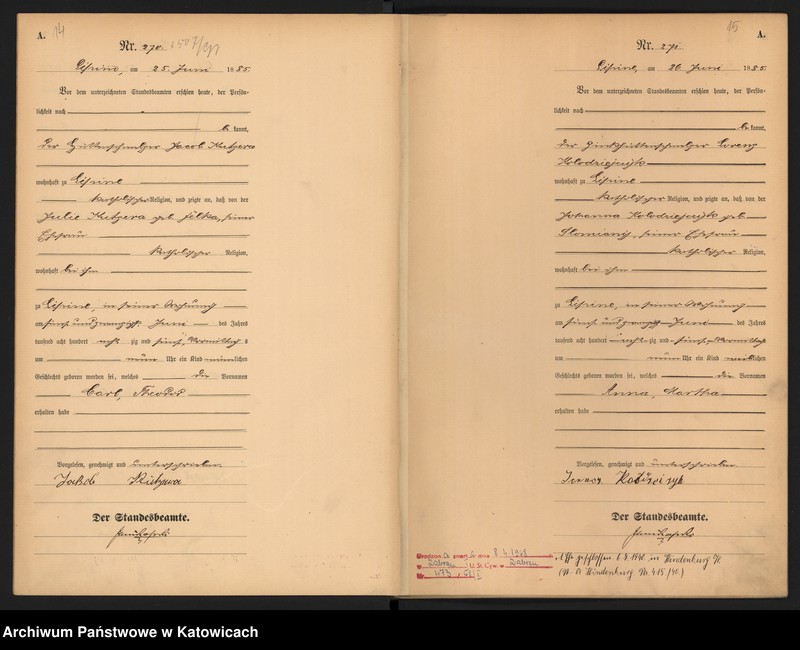 14
A.
Nr. 270.
Lipine, am 25. Juni 1885.
Vor dem unterzeichneten Standesbeamten erschien heute, der Persön-
lichkeit nach
be kannt,
der Hüttenschmelzer Jacob
wohnhaft zu Lipine
katholischer Religion, und zeigte an, daß von der
Julie geb. seiner
Ehefrau
katholischer Religion,
wohnhaft bei ihm
zu Lipine, in seiner Wohnung
am fünf und zwanzigsten Juni des Jahres
tausend acht hundert acht zig und fünf, Vormittags
um neun Uhr ein Kind männlichen
Geschlechts geboren worden sei, welches die Vornamen
Carl, Theodor
erhalten habe
Vorgelesen, genehmigt und unterschrieben
Jakob
Der Standesbeamte.
15
A.
Nr. 271.
Lipine, am 26. Juni 1885.
Vor dem unterzeichneten Standesbeamten erschien heute, der Persön-
lichkeit nach
be kannt,
der Zinkhüttenschmelzer Lorenz
Kolodziejczyk
wohnhaft zu Lipine
katholischer Religion, und zeigte an, daß von der
Johanna Kolodziejczyk geb.
Slomiany, seiner Ehefrau
katholischer Religion,
wohnhaft bei ihm
zu Lipine, in seiner Wohnung
am fünf und zwanzigsten Juni des Jahres
tausend acht hundert acht zig und fünf Vormittags
um neun Uhr ein Kind weiblichen
Geschlechts geboren worden sei, welches die Vornamen
Anna, Martha
erhalten habe
Vorgelesen, genehmigt und unterschrieben
Der Standesbeamte.
dnia 8.4.1968
w Zabrzu U.S.C. w Zabrzu
Nr. 473
in Hindenburg O/S.
Hindenburg Nr. 415/40.)
Archiwum Państwowe w Katowicach